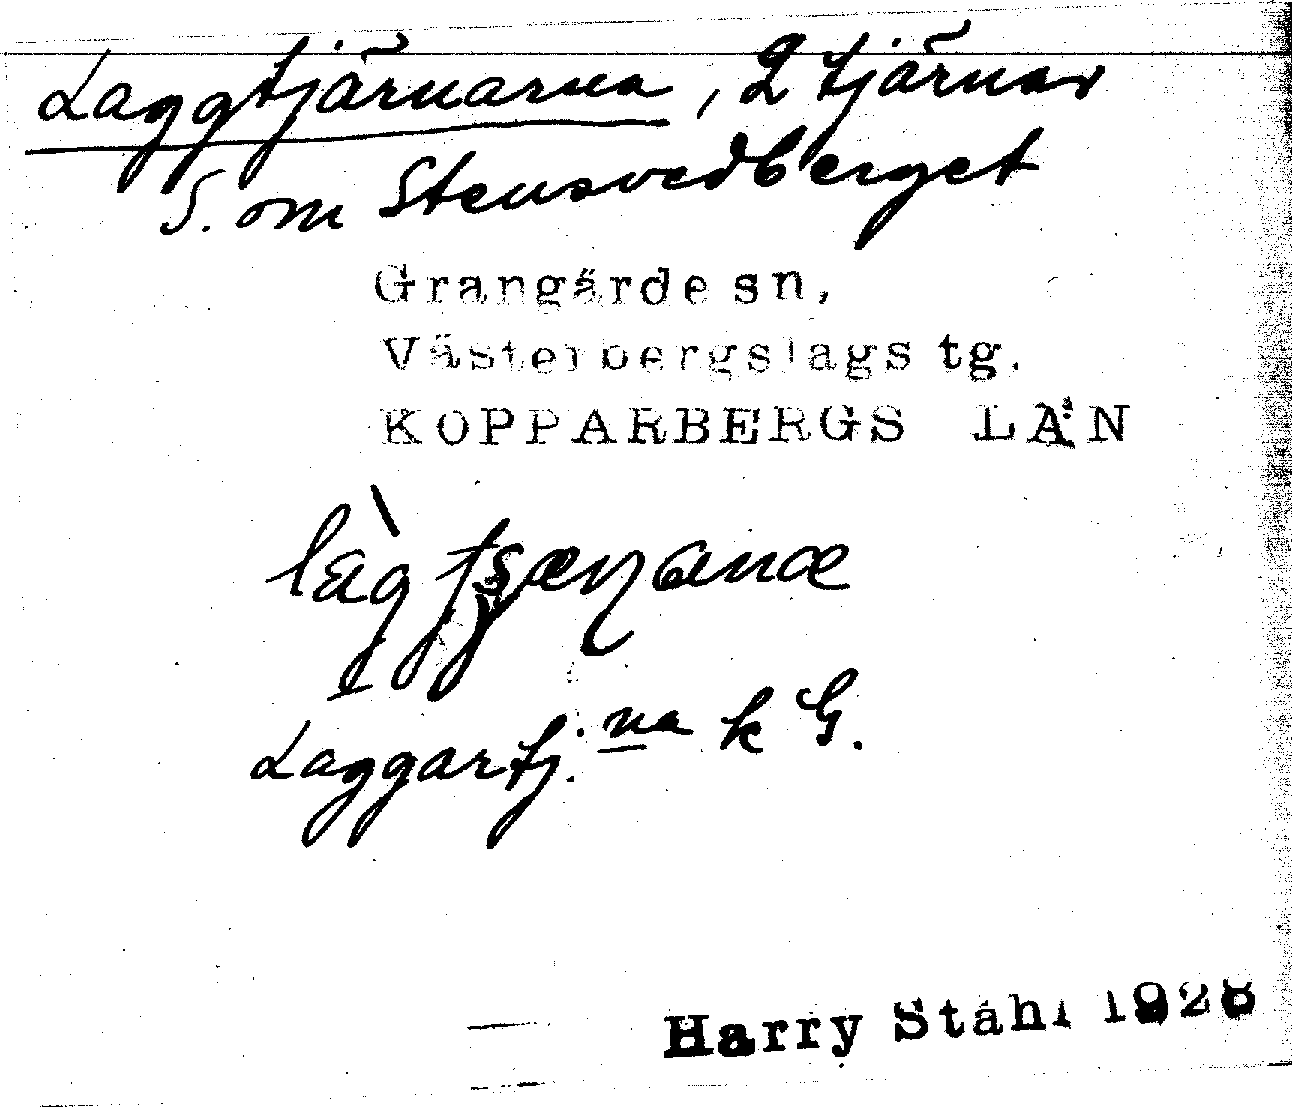 Laggtjärnarna, 2 tjärnar
S. om Stensvedberget
Grangärde sn,
Västerbergslags tg.
KOPPARBERGS LÄN
Laggartj:na k G.
Harry Ståhl 1928